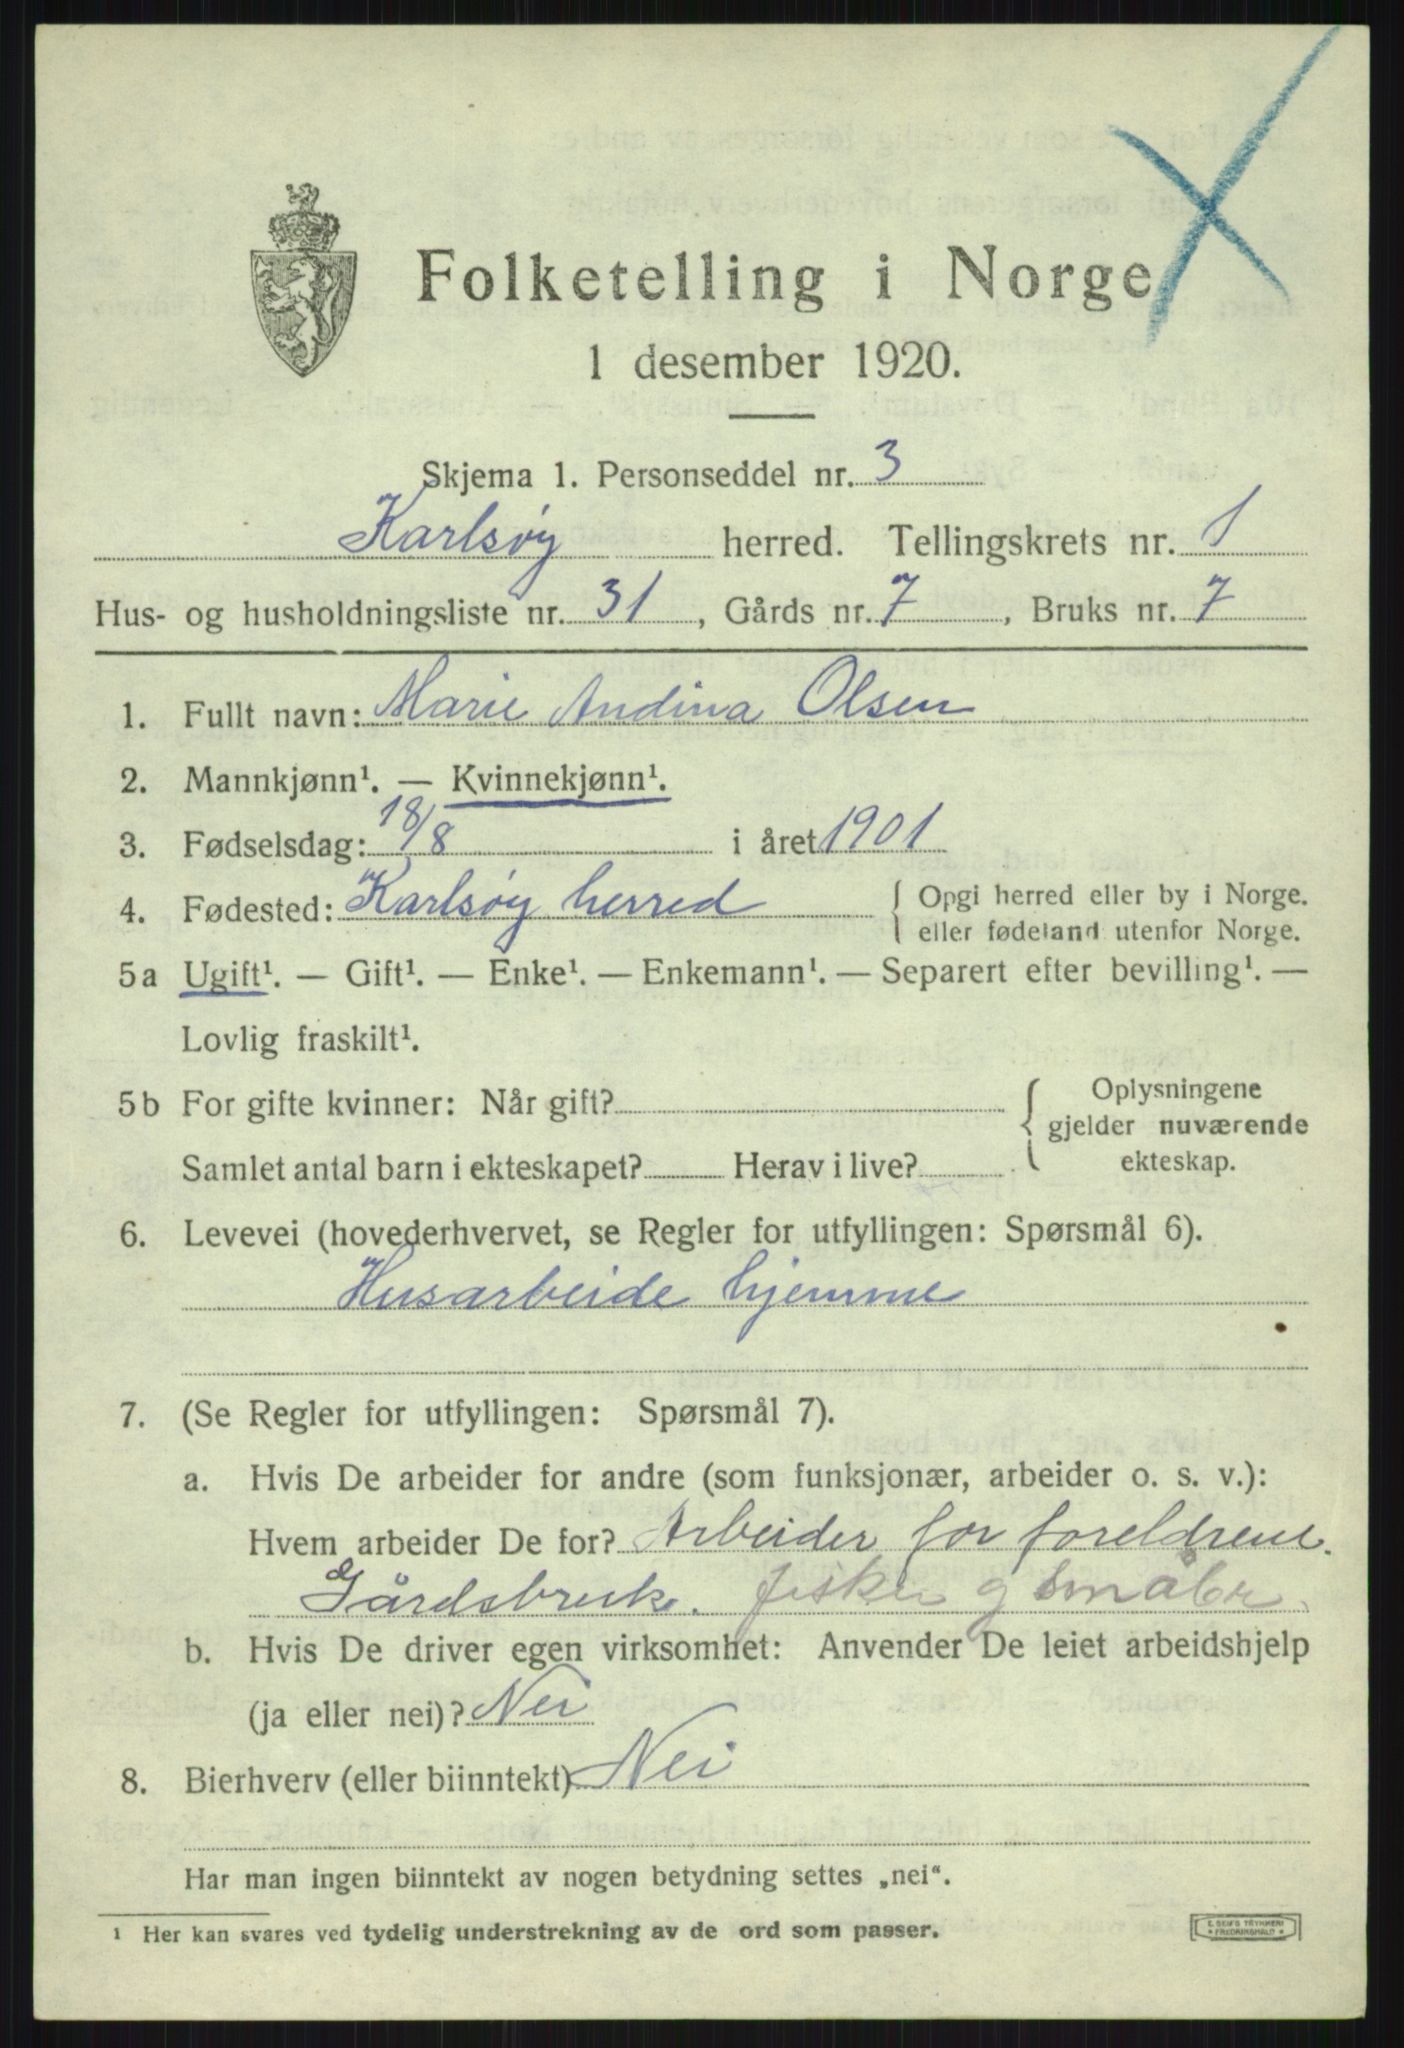 Folketelling i Norge
1 desember 1920.
Skjema 1. Personseddel nr. 3
Karlsøy herred. Tellingskrets nr. 1
Hus- og husholdningsliste nr. 31, Gårds nr. 7, Bruks nr. 7
1. Fullt navn: Marie Andina Olsen
2. Mannkjønn¹. — Kvinnekjønn¹.
3. Fødselsdag: 18/8 i året 1901
4. Fødested: Karlsøy herred { Opgi herred eller by i Norge.
eller fødeland utenfor Norge.
5a Ugift¹. — Gift¹. — Enke¹. — Enkemann¹. — Separert efter bevilling¹. —
Lovlig fraskilt¹.
5b For gifte kvinner: Når gift? { Oplysningene
gjelder nuværende
Samlet antal barn i ekteskapet? Herav i live? ekteskap.
6. Levevei (hovederhvervet, se Regler for utfyllingen: Spørsmål 6).
Husarbeide hjemme
7. (Se Regler for utfyllingen: Spørsmål 7).
a. Hvis De arbeider for andre (som funksjonær, arbeider o. s. v.):
Hvem arbeider De for? Arbeider for foreldrene.
Gårdsbruk. fisker og småbr.
b. Hvis De driver egen virksomhet: Anvender De leiet arbeidshjelp
(ja eller nei)? Nei
8. Bierhverv (eller biinntekt) Nei
Har man ingen biinntekt av nogen betydning settes „nei".
¹ Her kan svares ved tydelig understrekning av de ord som passer.
E. SEIFS TRYKKERI
* FREDRIKSHALD *